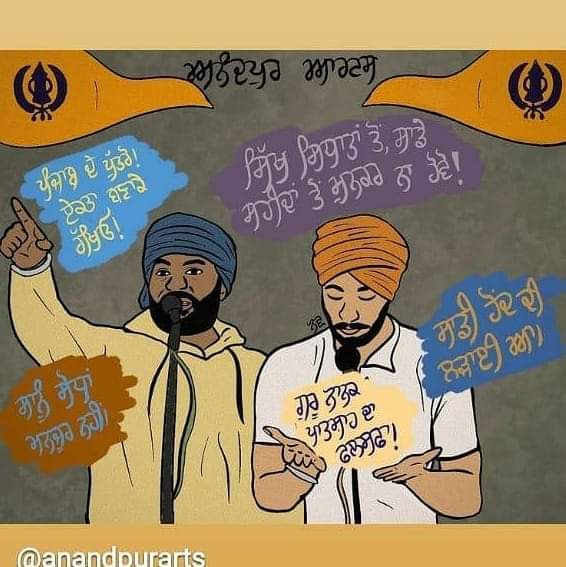 ਅਨੰਦਪੁਰ ਆਰਟਸ
ਪੰਜਾਬ ਦੇ ਪੁੱਤਰੋ!
ਏਕਤਾ ਬਣਾਕੇ
ਰੱਖਿਓ!
ਸਿੱਖ ਸਿਧਾਤਾਂ ਤੋਂ, ਸਾਡੇ
ਸ਼ਹੀਦਾਂ ਤੇ ਮੁਨਕਰ ਨਾ ਹੋਵੋ!
ਸਾਡੀ ਹੋਂਦ ਦੀ
ਲੜਾਈ ਆ।
ਸਾਨੂੰ ਸੋਧਾਂ
ਮਨਜ਼ੂਰ ਨਹੀਂ।
ਗੁਰੂ ਨਾਨਕ
ਪਾਤਸ਼ਾਹ ਦਾ
ਫਲਸਫਾ!
@anandpurarts